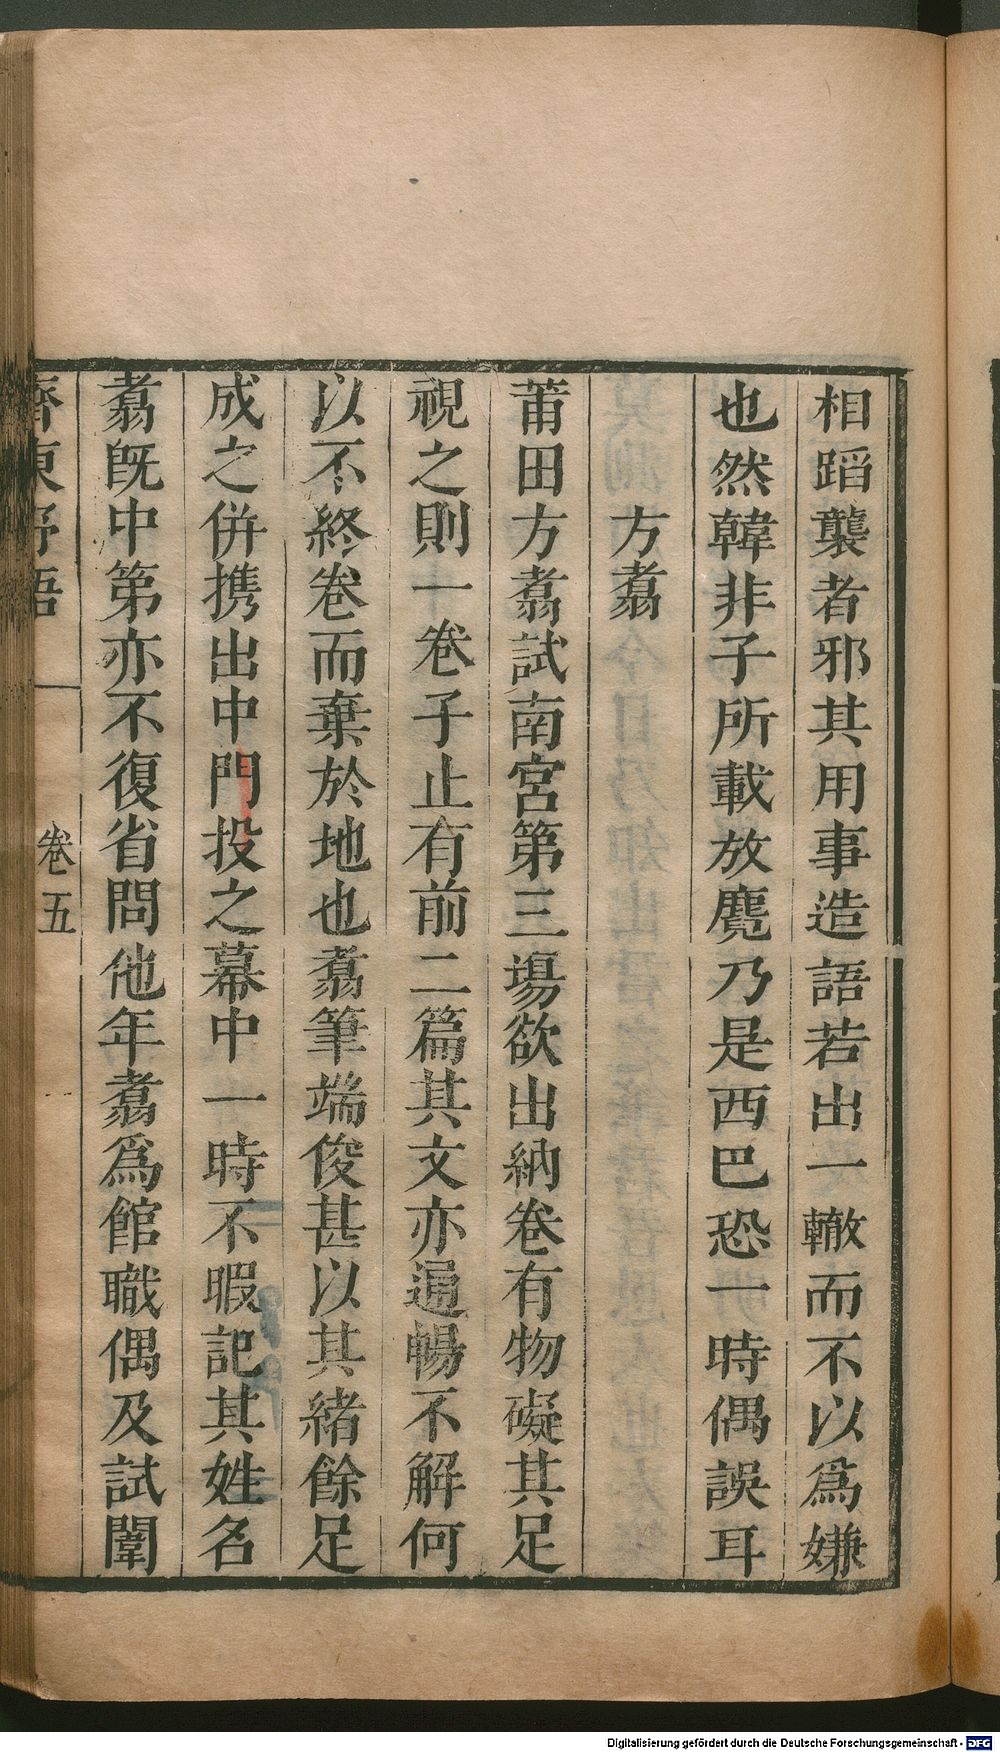 相蹈襲者邪其用事造語若出一轍而不以爲嫌
也然韓非子所載放麑乃是西巴恐一時偶誤耳
方翥
莆田方翥試南宮第三場欲出納卷有物礙其足
視之則一卷子止有前二篇其文亦通暢不解何
以不終卷而棄於地也翥筆端俊甚以其緒餘足
成之併携出中門投之幕中一時不暇記其姓名
翥旣中第亦不復省問他年翥爲館職偶及試闈
齊東野語
卷五
Digitalisierung gefördert durch die Deutsche Forschungsgemeinschaft - DFG